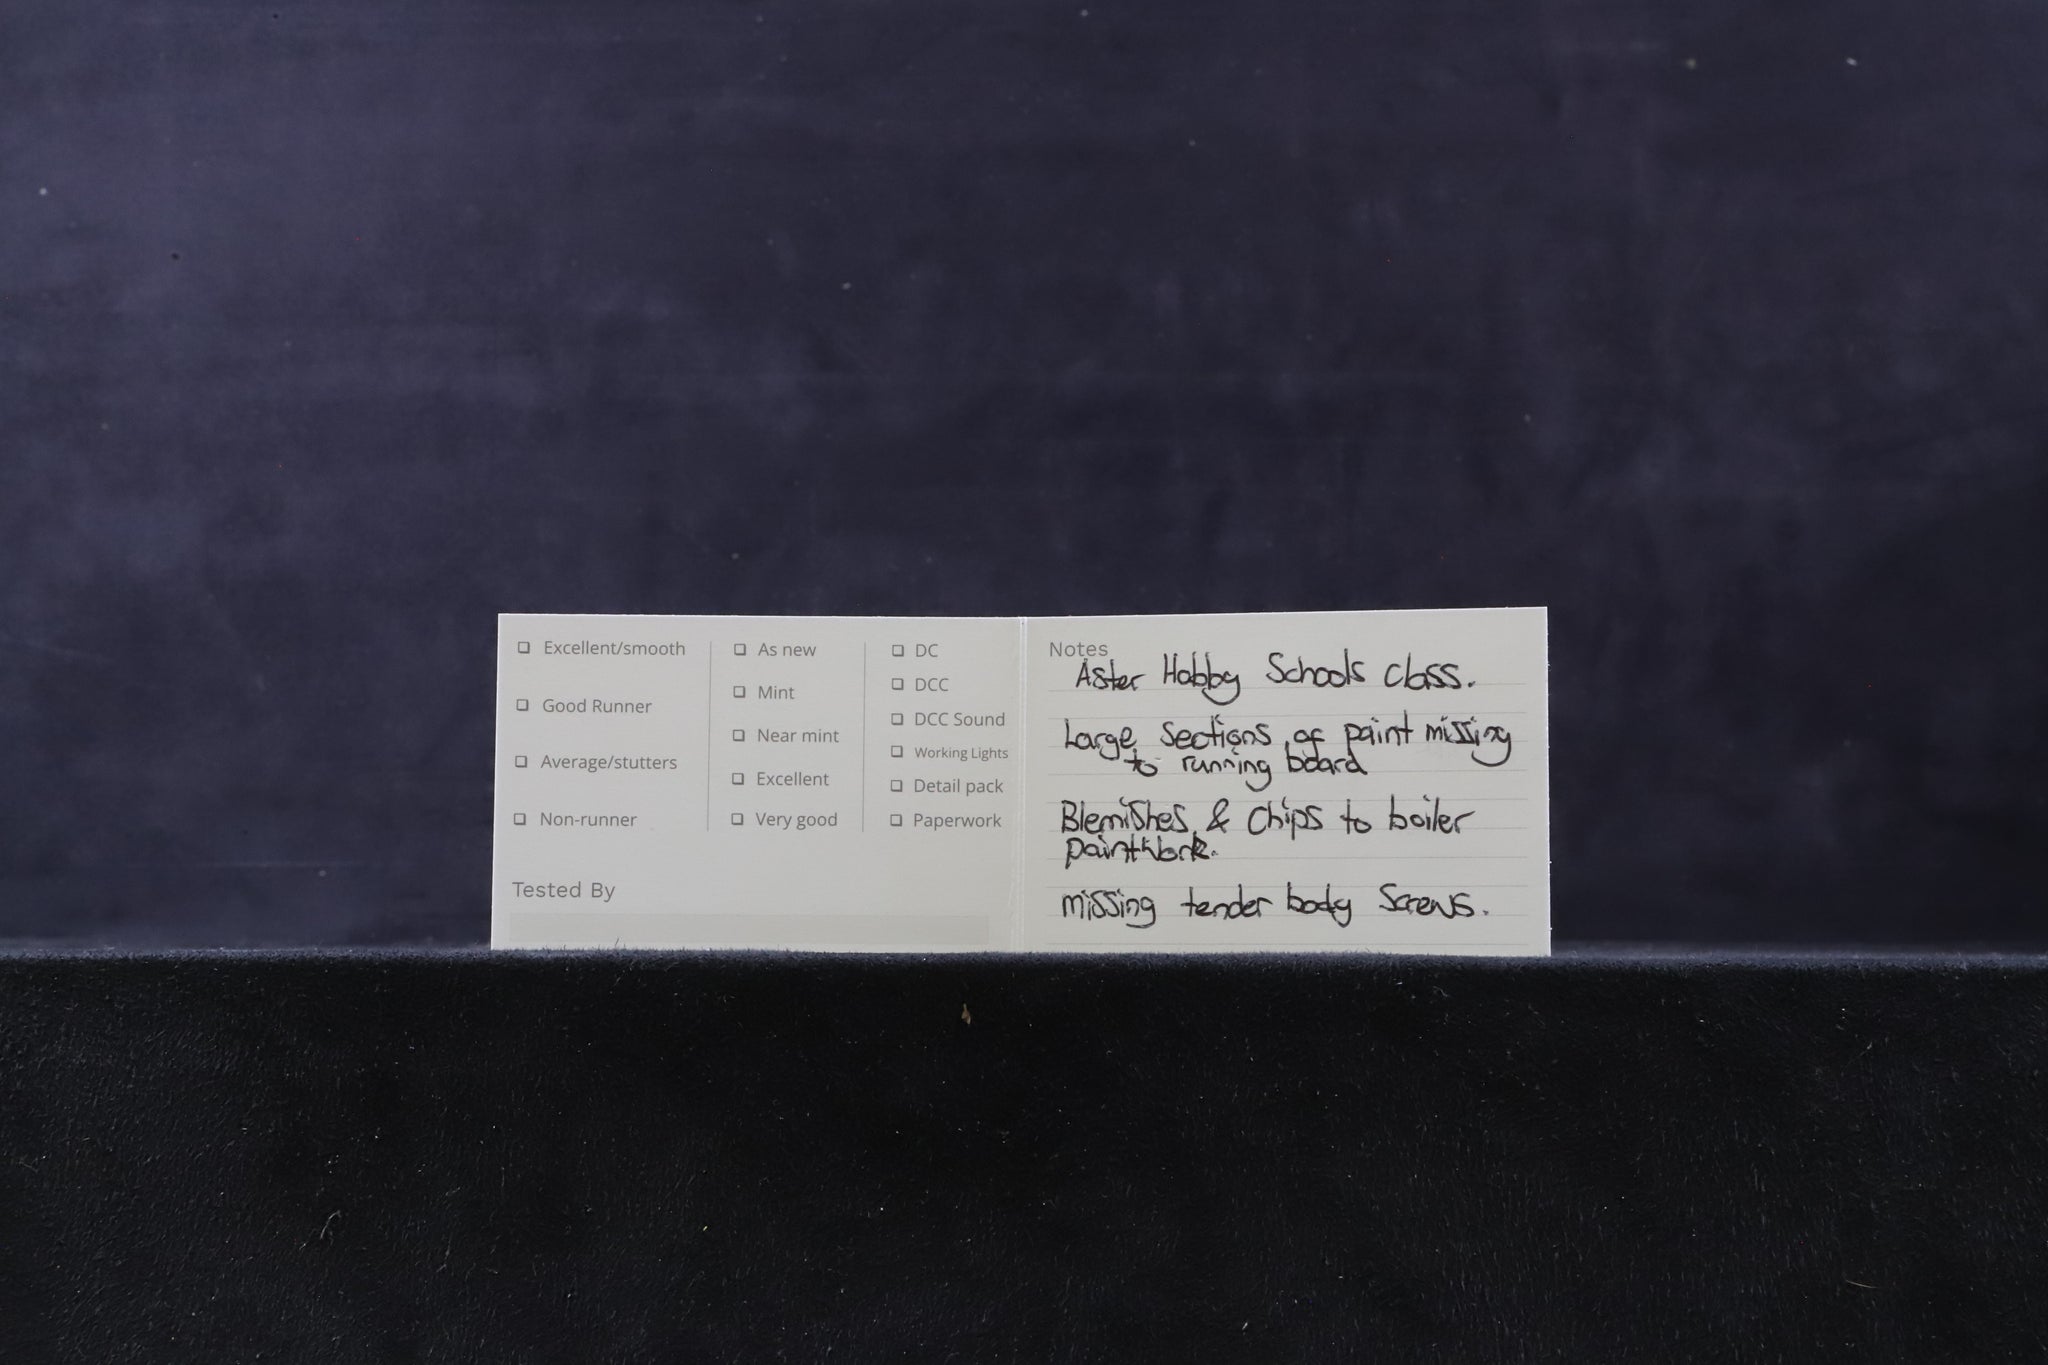 Excellent/smooth
Good Runner
Average/stutters
Non-runner
As new
Mint
Near mint
Excellent
Very good
DC
DCC
DCC Sound
Working Lights
Detail pack
Paperwork
Tested By
Notes
Aster Hobby Schools class.
Large sections of paint missing
to running board
Blemishes & Chips to boiler
paintwork.
missing tender body Screws.